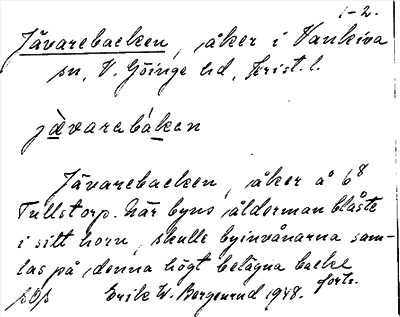 1-2.
Jävarebacken, åker i Vankiva
sn, V. Göinge hd, Krist. l.
jävarabaken
Jävarebacken, åker å 6⁸
Tullstorp. När byns ålderman blåste
i sitt horn, skulle byinvånarna sam-
las på denna högt belägna backe
forts.
Erik W. Bergenrud 1948.